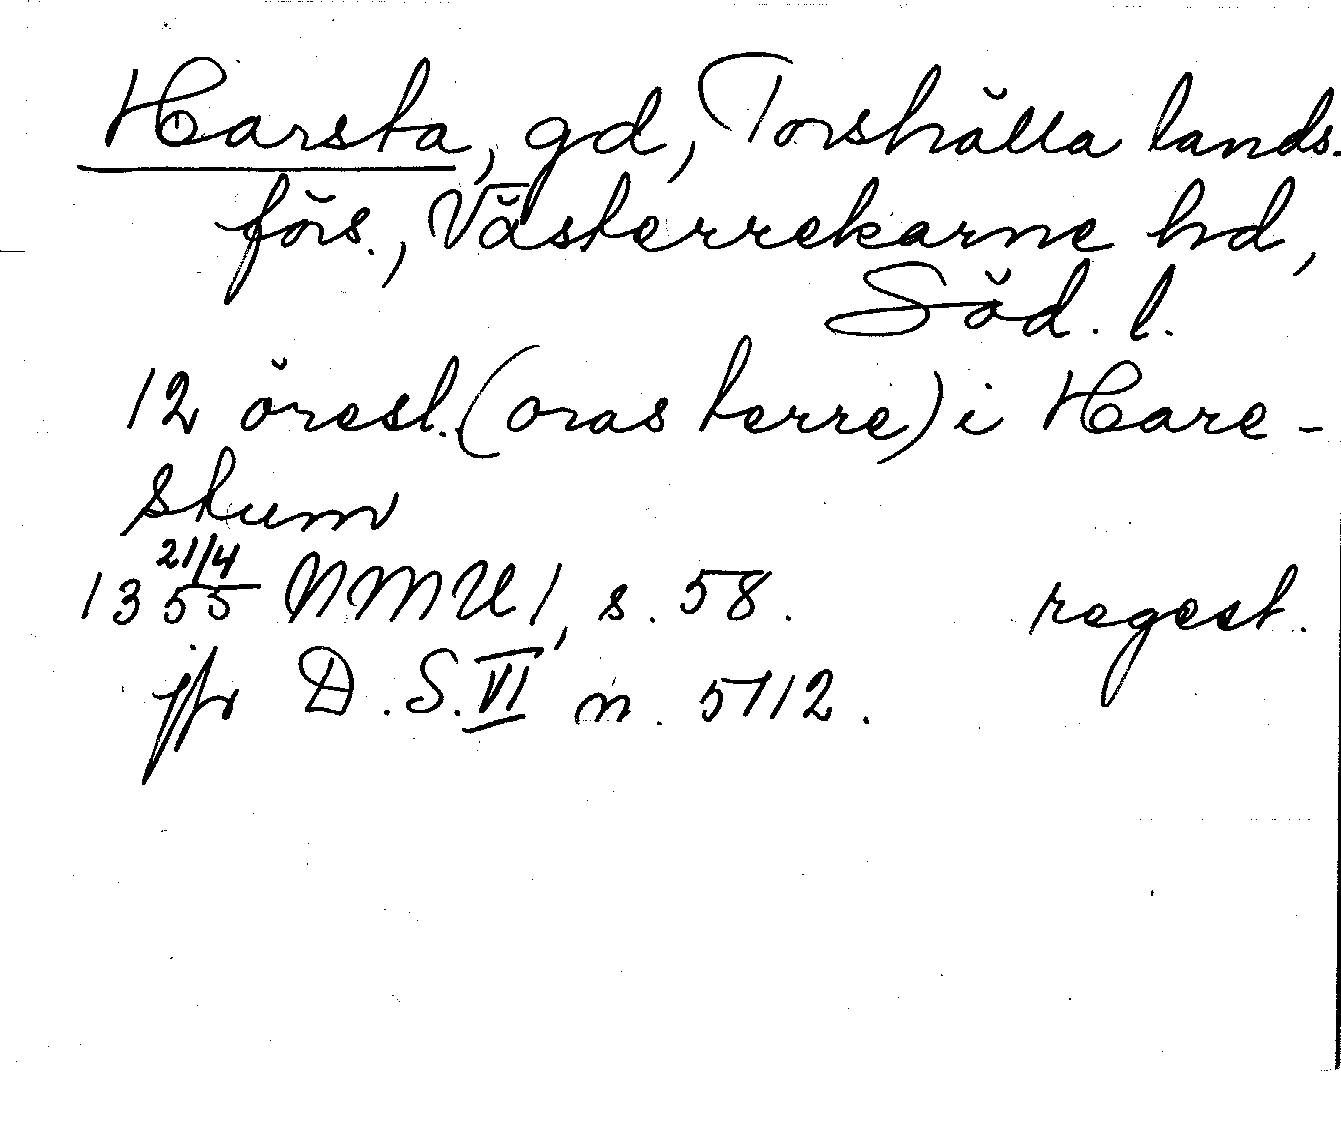 Harsta, gd, Torshälla lands-
förs., Västerrekarne hd,
Söd. l.
12 öresl. (oras terre) i Hare-
stum
1355 21/4 NMU 1, s. 58. regest.
jfr D.S. VI n. 5112.